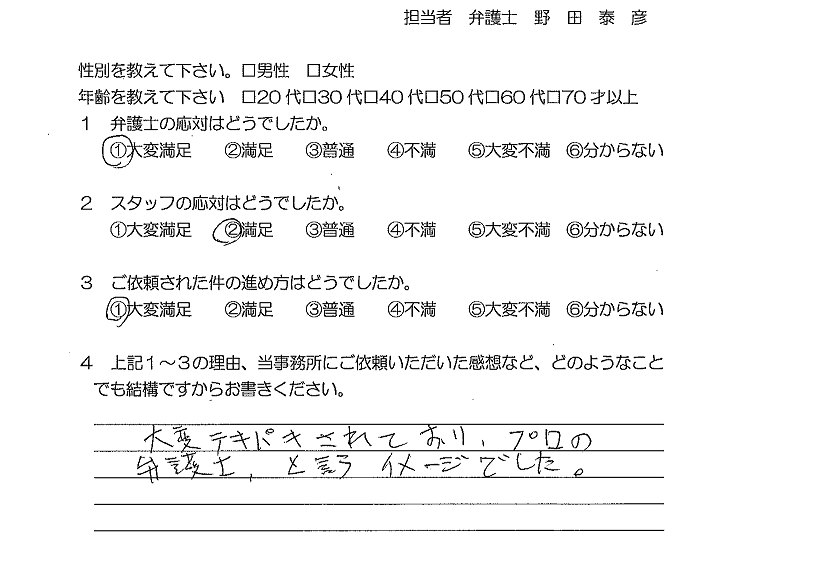 担当者　弁護士　野　田　泰　彦
性別を教えて下さい。□男性　□女性
年齢を教えて下さい　□20代□30代□40代□50代□60代□70才以上
１　弁護士の応対はどうでしたか。
①大変満足　②満足　③普通　④不満　⑤大変不満　⑥分からない
２　スタッフの応対はどうでしたか。
①大変満足　②満足　③普通　④不満　⑤大変不満　⑥分からない
３　ご依頼された件の進め方はどうでしたか。
①大変満足　②満足　③普通　④不満　⑤大変不満　⑥分からない
４　上記１～３の理由、当事務所にご依頼いただいた感想など、どのようなこと
でも結構ですからお書きください。
大変テキパキされており、プロの
弁護士、と言う イメージでした。